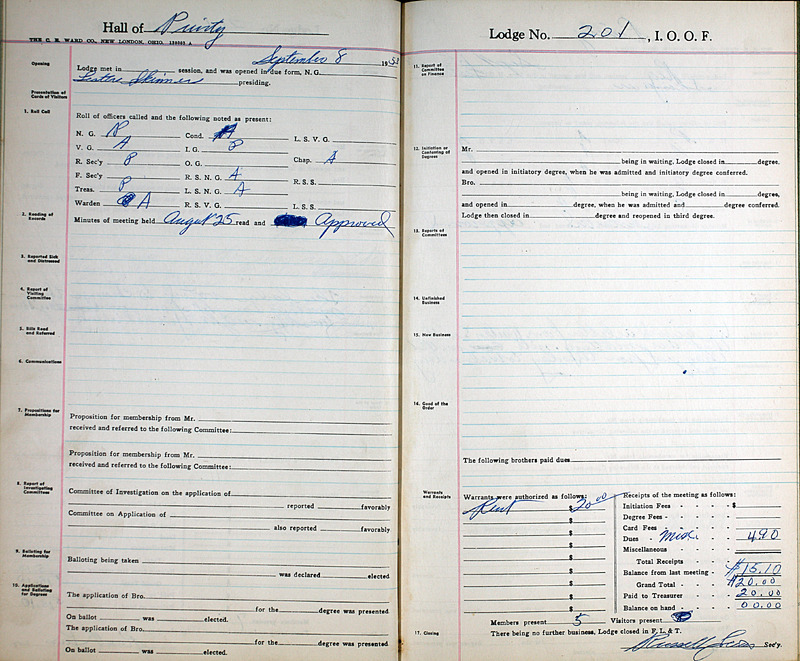 Hall of Purity
THE C. E. WARD CO., NEW LONDON, OHIO.
September 8 19
Opening
Lodge met in session, and was opened in due form, N. G.
Skinner presiding.
Presentation of Cards of Visitors
1. Roll Call
Roll of officers called and the following noted as present:
N. G. P Cond. A L. S. V. G.
V. G. A I. G. P
R. Sec'y P O. G. Chap. A
F. Sec'y R. S. N. G. A
R. S. S.
Treas. P L. S. N. G. A
Warden A R. S. V. G. L. S. S.
2. Reading of Records
Minutes of meeting held August 25 read and Approved
3. Reported Sick and Distressed
4. Report of Visiting Committee
5. Bills Read and Referred
6. Communications
7. Propositions for Membership
Proposition for membership from Mr.
received and referred to the following Committee:
Proposition for membership from Mr.
received and referred to the following Committee:
8. Report of Investigating Committees
Committee of Investigation on the application of
reported favorably
Committee on Application of
also reported favorably
9. Balloting for Membership
Balloting being taken
was declared elected.
10. Applications and Balloting for Degrees
The application of Bro.
for the degree was presented.
On ballot was elected.
The application of Bro.
for the degree was presented.
On ballot was elected.
Lodge No. 201, I. O. O. F.
11. Report of Committee on Finance
12. Initiation or Conferring of Degrees
Mr.
being in waiting, Lodge closed in degree,
and opened in initiatory degree, when he was admitted and initiatory degree conferred.
Bro.
being in waiting, Lodge closed in degree,
and opened in degree, when he was admitted and degree conferred.
Lodge then closed in degree and reopened in third degree.
13. Reports of Committees
14. Unfinished Business
15. New Business
16. Good of the Order
The following brothers paid dues
Warrants and Receipts
Warrants were authorized as follows:
Rent $20.00
$
$
$
$
$
$
$
$
Receipts of the meeting as follows:
Initiation Fees - - - - $
Degree Fees - -
Card Fees -
Dues - Misc. 4.90
Miscellaneous
Total Receipts
Balance from last meeting - $15.10
Grand Total - - $20.00
Paid to Treasurer - 20.00
Balance on hand - - 00.00
Members present 5 Visitors present
17. Closing
There being no further business, Lodge closed in F. L. & T.
Russell Sec'y.